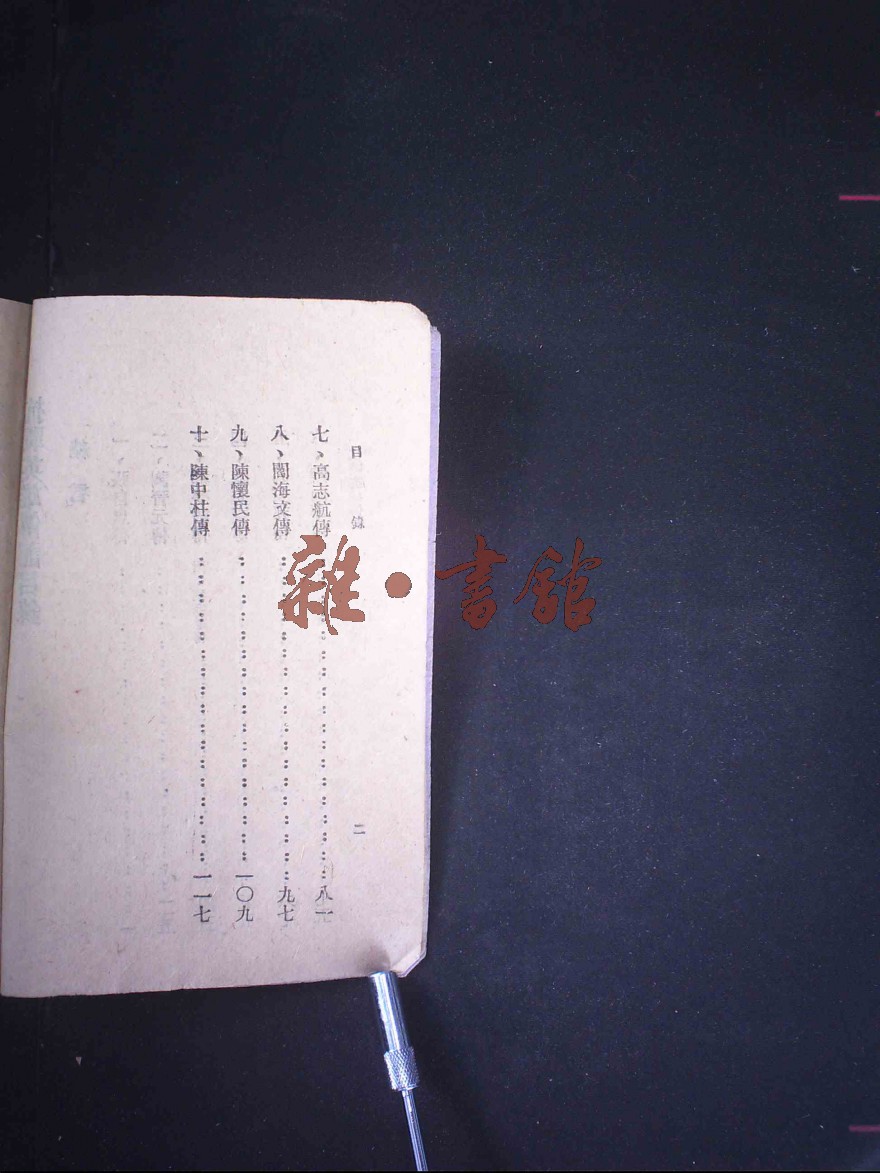 目錄 二
七、高志航傳 八一
八、閻海文傳 九七
九、陳懷民傳 一〇九
十、陳中柱傳 一一七
雜·書館